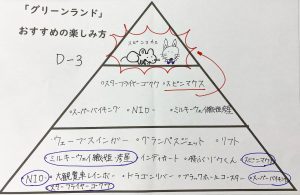 「グリーンランド」
おすすめの楽しみ方
D-3
スピンマウス
・スターフライヤーゴクウ ・スピンマウス
・スーパーバイキング ・NIO ・ミルキーウェイ
・ウェーブスインガー ・グランパスジェット ・リフト
ミルキーウェイ ・インディカート スピンマウス
NIO ・大観覧車レインボー ・ドラゴンリバー ・ブラックホールコースター ・スーパーバイキング
スターフライヤーゴクウ